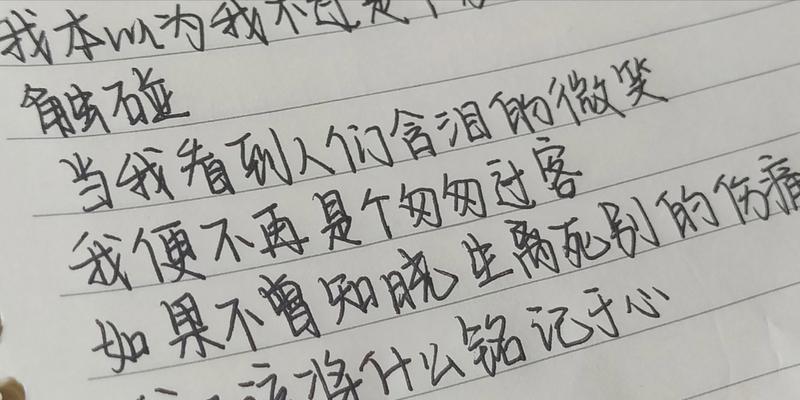 我本以为我不过是个
触碰
当我看到人们含泪的微笑
我便不再是个匆匆过客
如果不曾知晓生离死别的伤痛
该将什么铭记于心